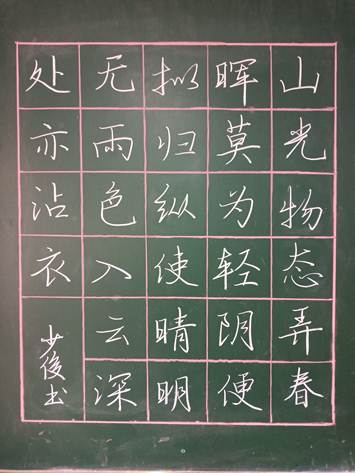 山光物态弄春
晖莫为轻阴便
拟归纵使晴明
无雨色入云深
处亦沾衣
少俊书